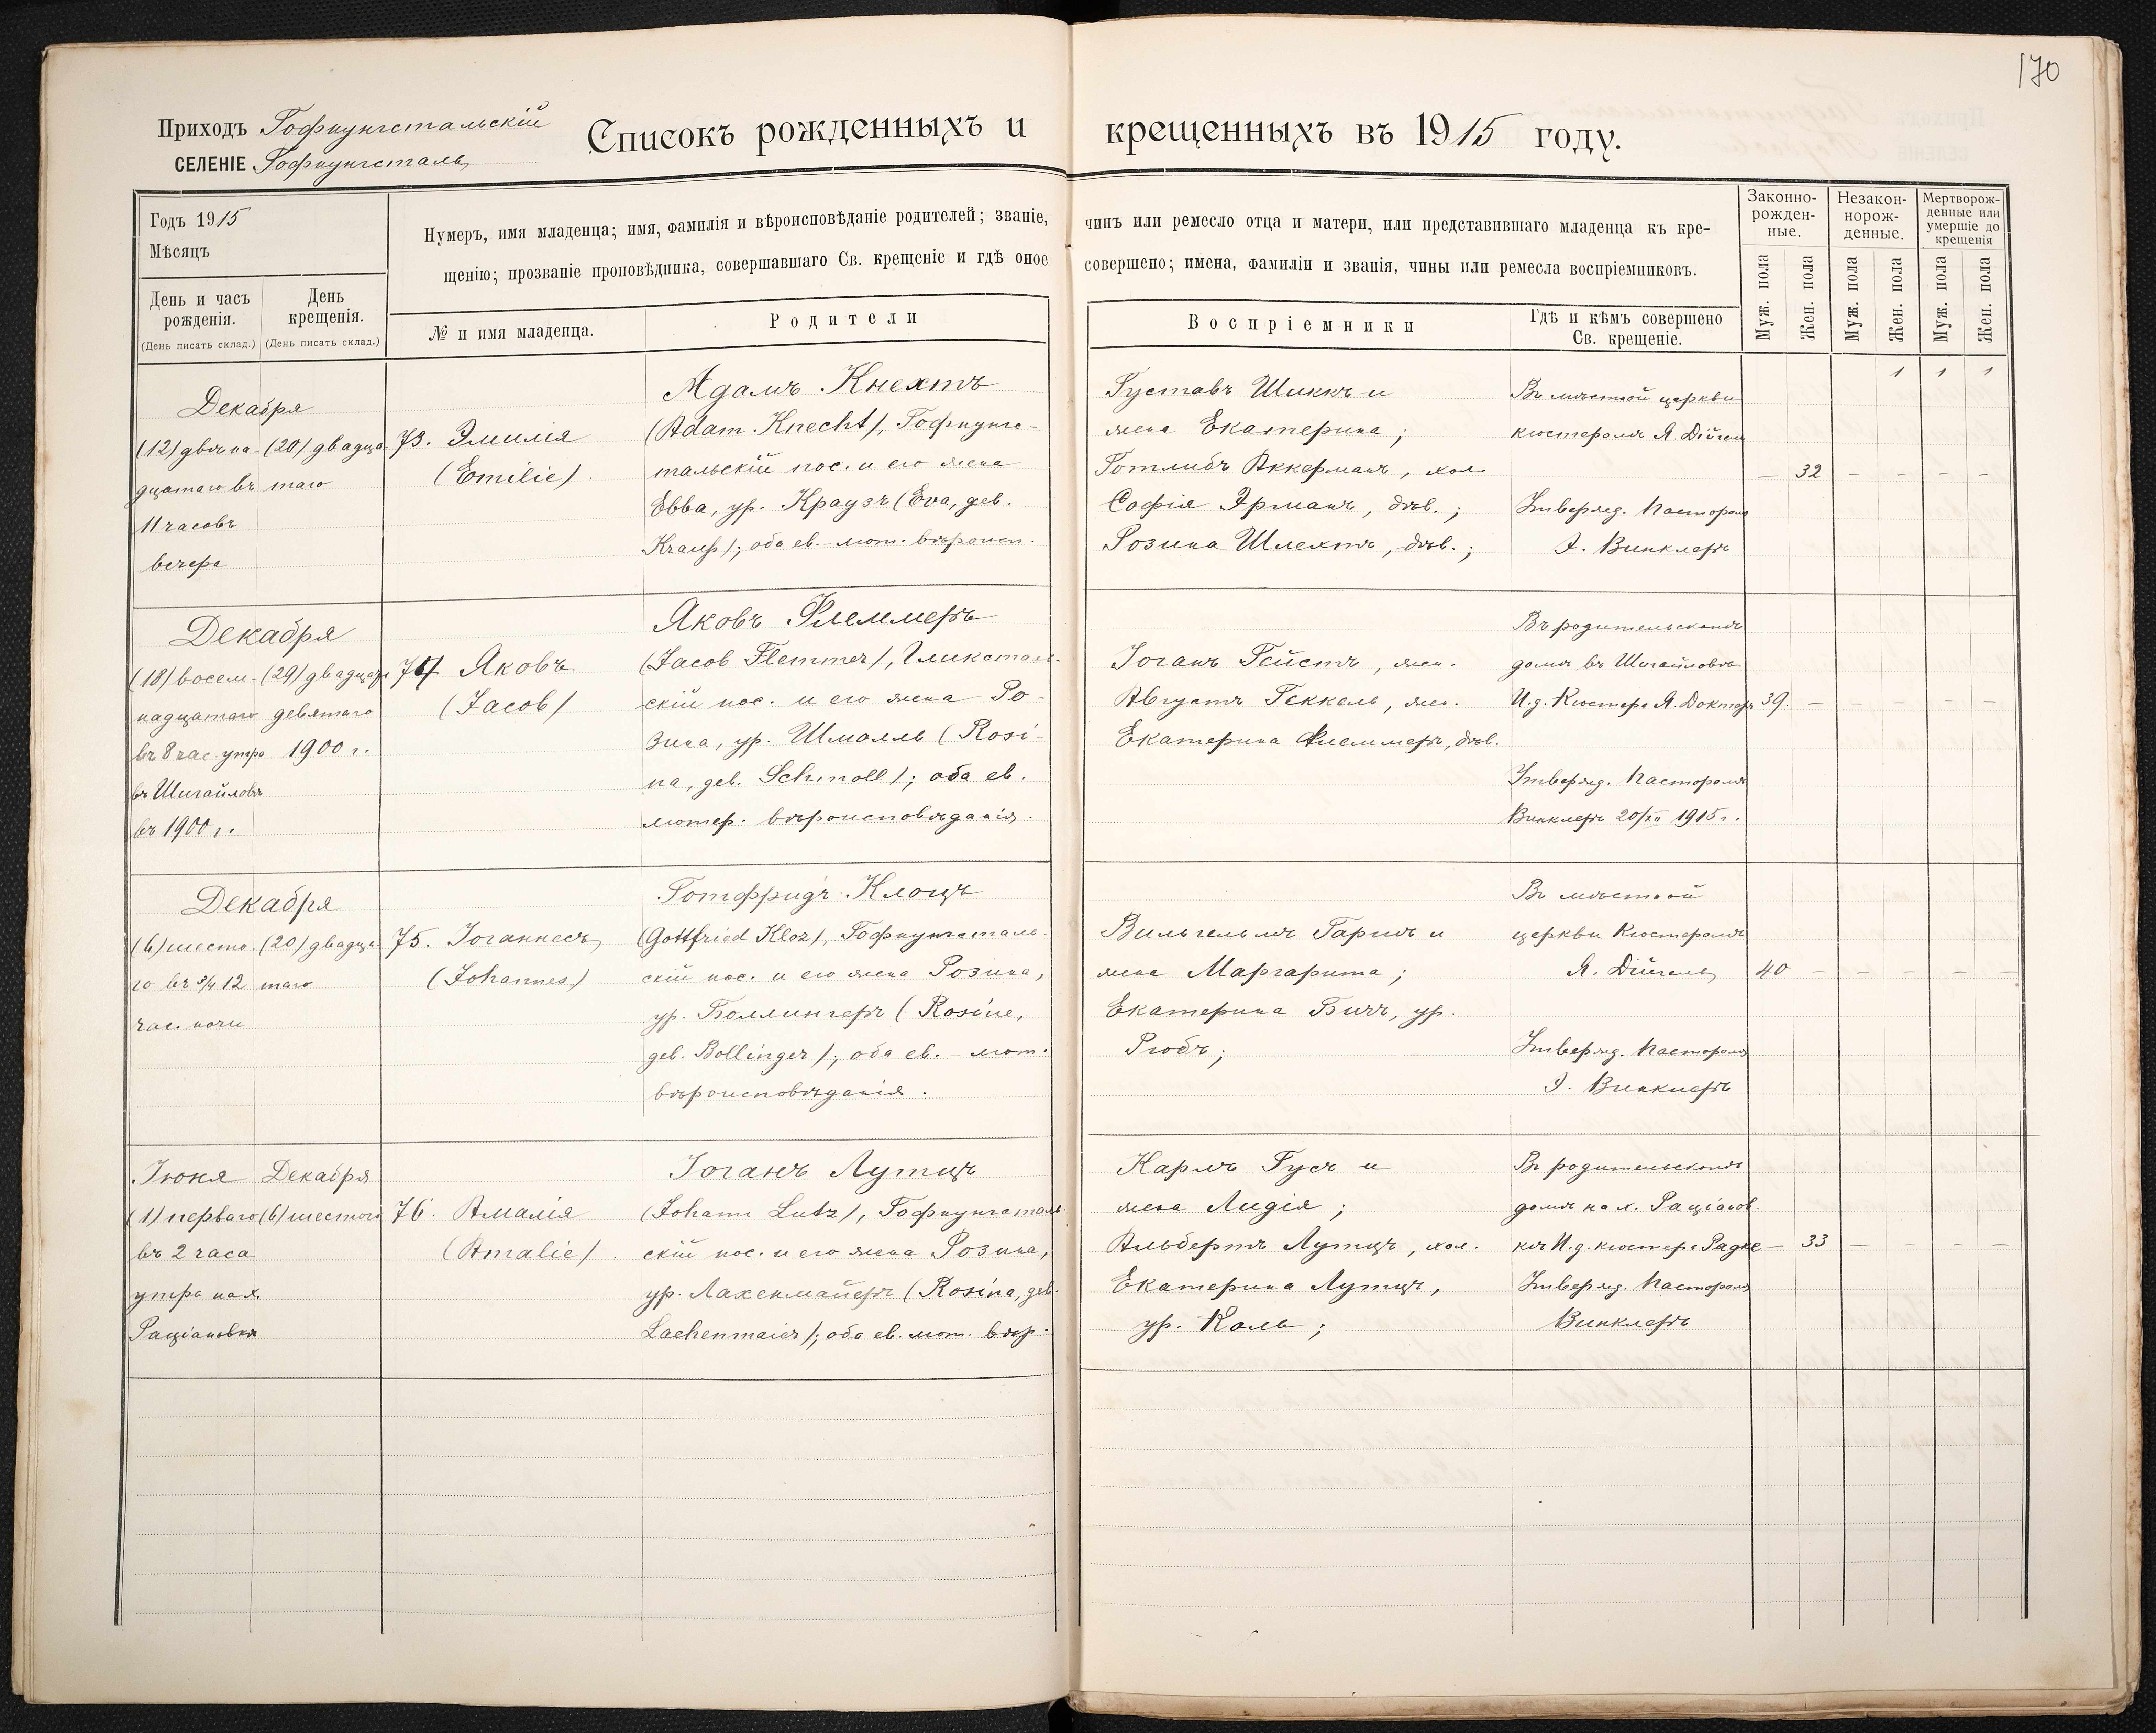 170
Приходъ Гофнунгстальскій
СЕЛЕНІЕ Гофнунгсталь
Списокъ рожденныхъ и крещенныхъ въ 1915 году.
Годъ 1915
Мѣсяцъ
День и часъ рожденія.
(День писать склад.)
День крещенія.
(День писать склад.)
Нумеръ, имя младенца; имя, фамилія и вѣроисповѣданіе родителей; званіе, чинъ или ремесло отца и матери, или представившаго младенца къ кре-
щенію; прозваніе проповѣдника, совершавшаго Св. крещеніе и гдѣ оное совершено; имена, фамиліи и званія, чины или ремесла воспріемниковъ.
№ и имя младенца.
Родители
Воспріемники
Гдѣ и кѣмъ совершено
Св. крещеніе.
Законно-
рожден-
ные.
Незакон-
норож-
денные.
Мертворож-
денные или
умершіе до
крещенія
Муж. пола
Жен. пола
Муж. пола
Жен. пола
Муж. пола
Жен. пола
1 1 1
Декабря
(12) двѣна-
дцатаго въ
11 часовъ
вечера
(20) двадца-
таго
73. Эмилія
(Emilie).
Адамъ Кнехтъ
(Adam Knecht), Гофнунгс-
тальскій пос. и его жена
Евва, ур. Краузъ (Eva, дев.
Krauß); оба ев.-лют. вѣроисп.
Густавъ Шикъ и
жена Екатерина;
Готлибъ Аккерманъ, хол.
Софія Эрманъ, дѣв.;
Розина Шлехтъ, дѣв.;
Въ мѣстной церкви
кюстеромъ Я. Дійгель
Утвержд. Пасторомъ
І. Винклеръ
— 32 — — — —
Декабря
(18) восем-
надцатаго
въ 8 час. утра
въ Шигайловѣ
въ 1900 г.
(29) двадцать
девятаго
1900 г.
74 Яковъ
(Jacob)
Яковъ Флеммеръ
(Jacob Flemmer), Гликсталь-
скій пос. и его жена Ро-
зина, ур. Шмолль (Rosi-
na, дев. Schmoll); оба ев.
лютер. вѣроисповѣданія.
Іоганъ Гейстъ, жен.
Августъ Геккель, жен.
Екатерина Флеммеръ, дѣв.
Въ родительскомъ
домѣ въ Шигайловѣ
И.д. Кюстера Я. Докторъ
Утвержд. Пасторомъ
Винклеръ 20/XII 1915 г.
39. — — — — —
Декабря
(6) шесто-
го въ 3/4 12
час. ночи
(20) двадца-
таго
75. Іоганнесъ,
(Johannes)
Готфридъ Клоцъ
(Gottfried Kloz), Гофнунгсталь-
скій пос. и его жена Розина,
ур. Боллингеръ (Rosine,
дев. Bollinger); оба ев. - лют.
вѣроисповѣданія.
Вильгельмъ Гармъ и
жена Маргарита;
Екатерина Бичъ, ур.
Рюбъ;
Въ мѣстной
церкви Кюстеромъ
Я. Дійгель
Утвержд. Пасторомъ
І. Винклеръ
40 — — — — —
Іюня
(1) перваго
въ 2 часа
утра на х.
Раціановкѣ
Декабря
(6) шестого
76. Амалія
(Amalie).
Іоганъ Лутцъ
(Johann Lutz), Гофнунгсталь-
скій пос. и его жена Розина,
ур. Лахенмайеръ (Rosina, дев.
Lachenmaier); оба ев. лют. вѣр.
Карлъ Гусъ и
жена Лидія;
Альбертъ Лутцъ, хол.
Екатерина Лутцъ,
ур. Коль;
Въ родительскомъ
домѣ на х. Раціанов-
кѣ И.д. кюстера Радке
Утвержд. Пасторомъ
Винклеръ
— 33 — — — —